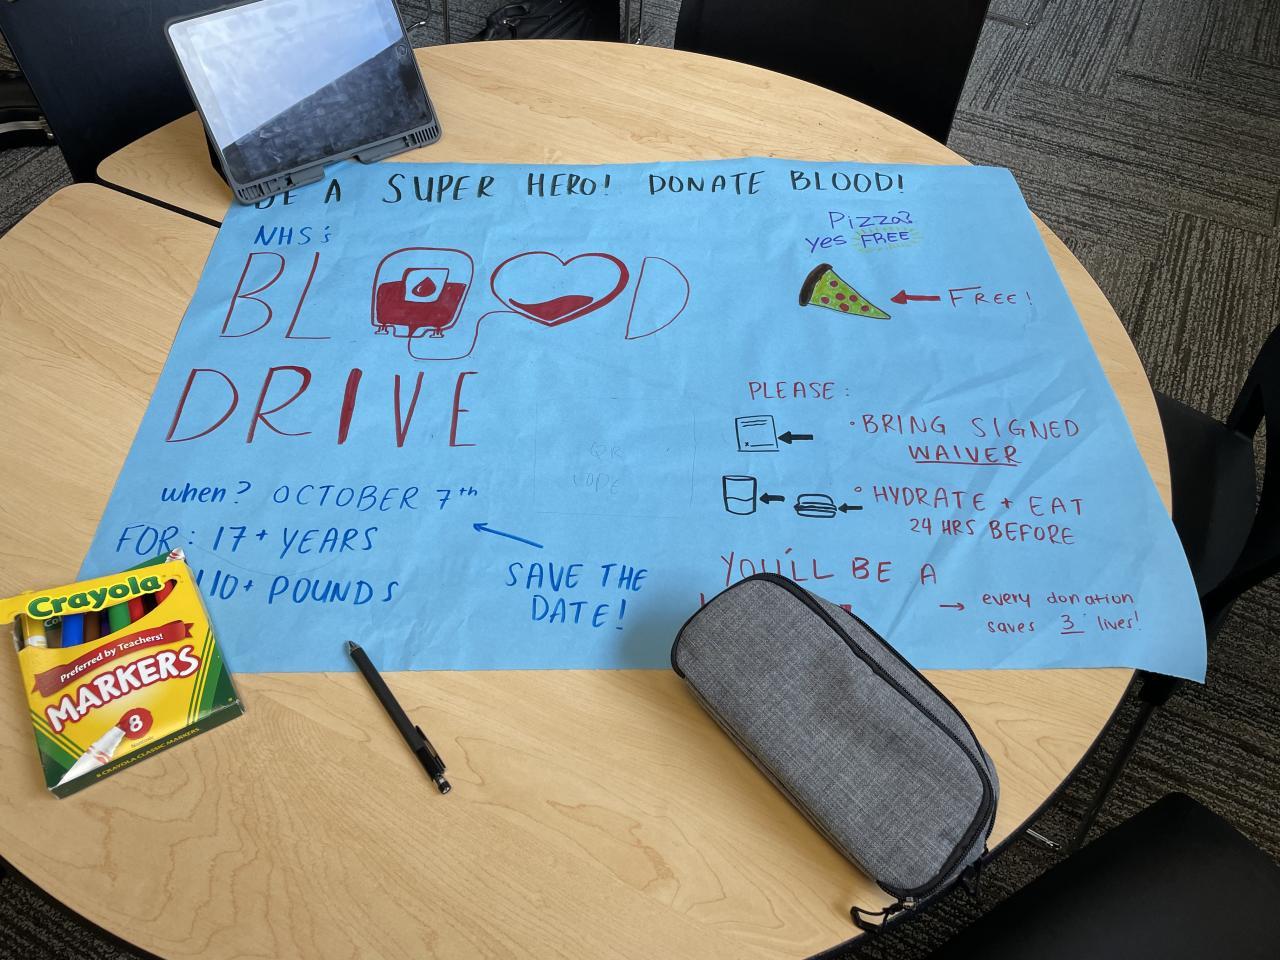 BE A SUPER HERO! DONATE BLOOD!
NHS's
BLOOD
DRIVE
when? OCTOBER 7th
FOR: 17+ YEARS
110+ POUNDS
SAVE THE
DATE!
QR
CODE
Pizza?
yes FREE
FREE!
PLEASE:
• BRING SIGNED
WAIVER
• HYDRATE + EAT
24 HRS BEFORE
YOU'LL BE A
→ every donation
saves 3 lives!
Crayola
Preferred by Teachers!
MARKERS
8
8 CRAYOLA CLASSIC MARKERS